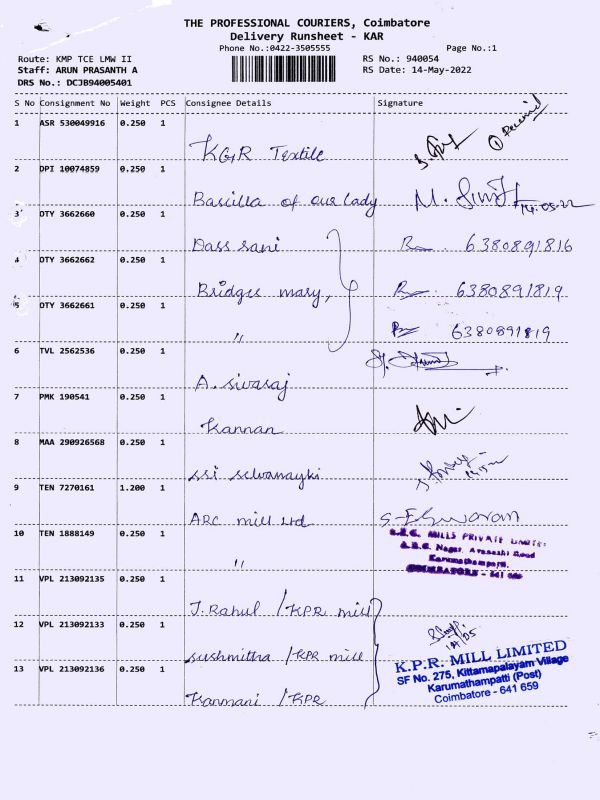 THE PROFESSIONAL COURIERS, Coimbatore
Delivery Runsheet - KAR
Phone No.:0422-3505555
Page No.:1
Route: KMP TCE LMW II
RS No.: 940054
Staff: ARUN PRASANTH A
RS Date: 14-May-2022
DRS No.: DCJB94005401
S No Consignment No Weight PCS Consignee Details Signature
1 ASR 530049916 0.250 1 KGR Textile Received
2 DPI 10074859 0.250 1 Bascilla of our Lady 14.05.22
3 DTY 3662660 0.250 1 Dass sani 6380891816
4 DTY 3662662 0.250 1 Bridges mary, 6380891819
5 DTY 3662661 0.250 1 " 6380891819
6 TVL 2562536 0.250 1 A. sivaraj
7 PMK 190541 0.250 1 Kannan
8 MAA 290926568 0.250 1 sri selvanayki
9 TEN 7270161 1.200 1 ARC mill Ltd S. Eswaram
10 TEN 1888149 0.250 1 "
MILLS PRIVATE LIMITED
Nagar, Avanashi Road
Karumathampatti,
COIMBATORE - 641
11 VPL 213092135 0.250 1 J. Rahul / KPR mill
12 VPL 213092133 0.250 1 sushmitha / KPR mill
13 VPL 213092136 0.250 1 Kanmani / KPR
K.P.R. MILL LIMITED
SF No. 275, Kittampalayam Village
Karumathampatti (Post)
Coimbatore - 641 659